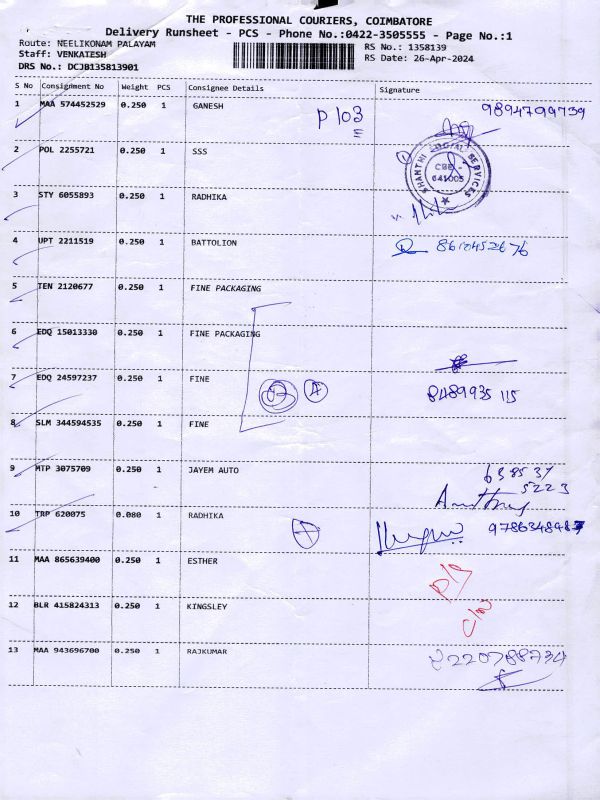 THE PROFESSIONAL COURIERS, COIMBATORE
Delivery Runsheet - PCS - Phone No.:0422-3505555 - Page No.:1
Route: NEELIKONAM PALAYAM
Staff: VENKATESH
DRS No.: DCJB135813901
RS No.: 1358139
RS Date: 26-Apr-2024
S No Consignment No Weight PCS Consignee Details Signature
1 MAA 574452529 0.250 1 GANESH P103 9894799739
2 POL 2255721 0.250 1 SSS
SHANTHI SOCIAL SERVICES
CBE -
641005
3 STY 6055893 0.250 1 RADHIKA
4 UPT 2211519 0.250 1 BATTOLION 8610452676
5 TEN 2120677 0.250 1 FINE PACKAGING
6 EDQ 15013330 0.250 1 FINE PACKAGING
7 EDQ 24597237 0.250 1 FINE A 8489935 115
8 SLM 344594535 0.250 1 FINE
9 MTP 3075709 0.250 1 JAYEM AUTO 638537
5223
10 TRP 620075 0.080 1 RADHIKA 9786348987
11 MAA 865639400 0.250 1 ESTHER
12 BLR 415824313 0.250 1 KINGSLEY
13 MAA 943696700 0.250 1 RAJKUMAR 8220788734